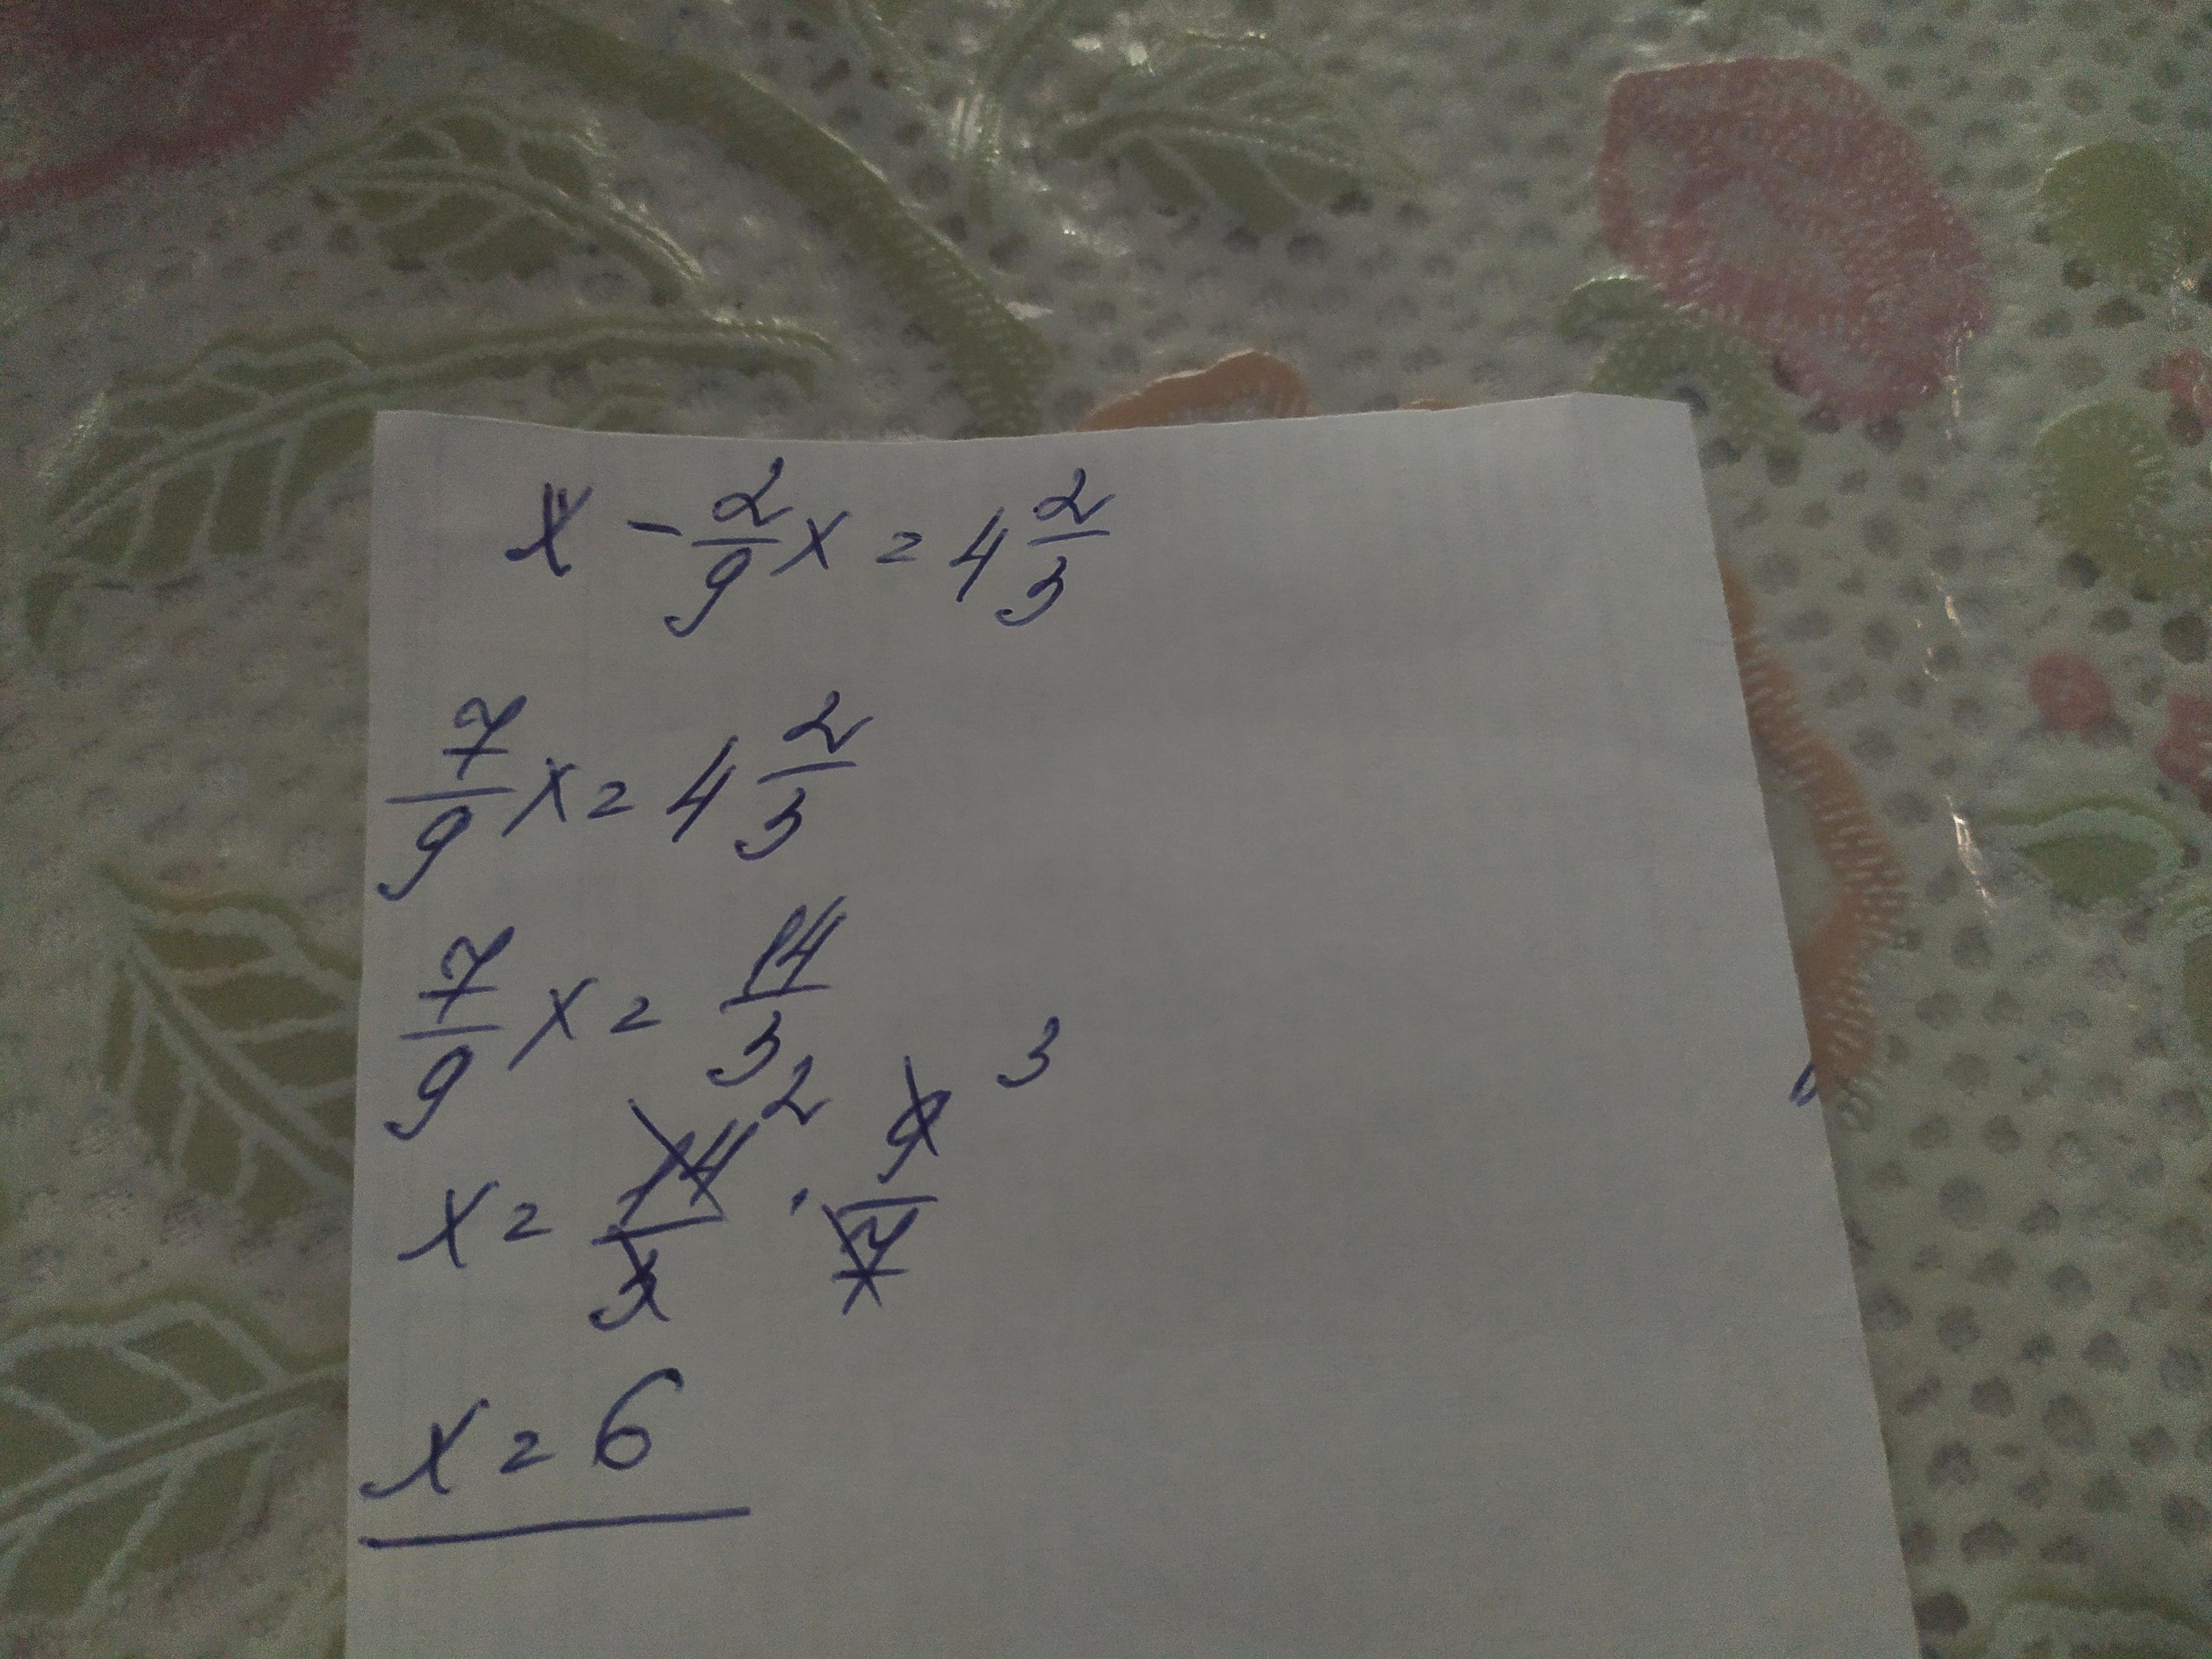 x - 2/9 x = 4 2/3
7/9 x = 4 2/3
7/9 x = 14/3
x = 14/3 2 · 9/7 3
x = 6